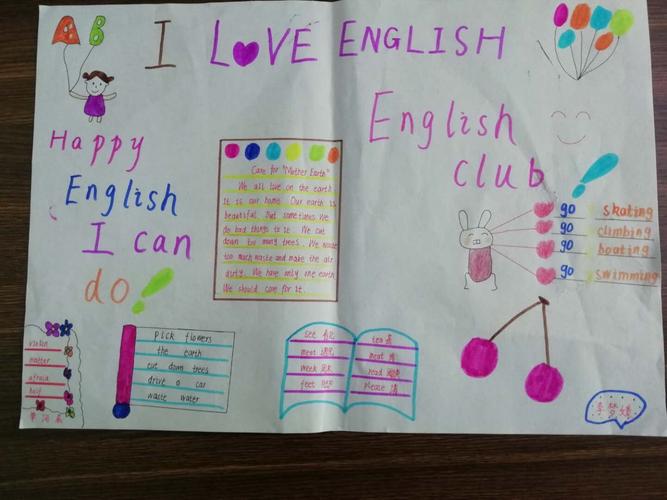 A B
I LOVE ENGLISH
Happy
English
I can
do!
English
club!
Care for "Mother Earth"
We all live on the earth.
It is our home. Our earth is
beautiful. But sometimes we
do bad things to it. We cut
down too many trees. We waste
too much waste and make the air
dirty. We have only one earth.
We should care for it.
go skating
go climbing
go boating
go swimming
violin
matter
afraid
half
pick flowers
the earth
cut down trees
drive a car
waste water
see 看见
meet 遇见
week
feet
tea 茶
meat 肉
read 阅读
please 请
李梦婕